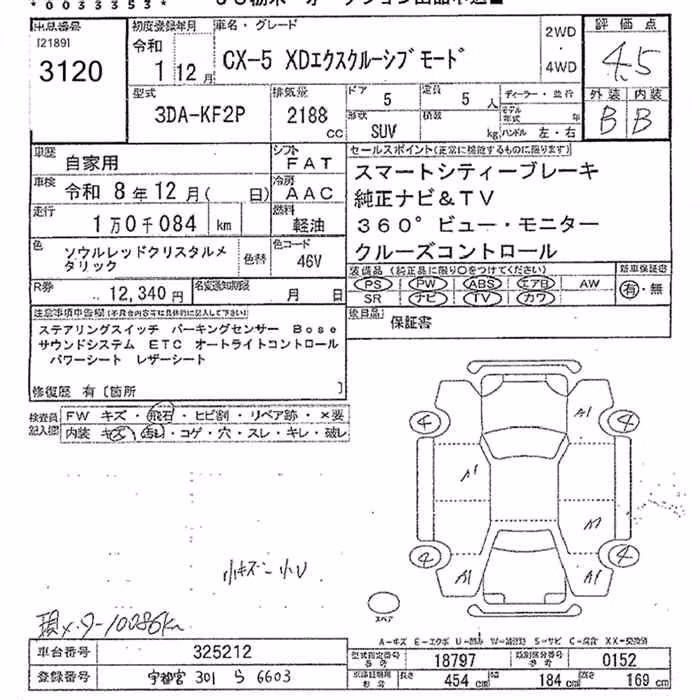 *0033353*
出品番号
[2189]
3120
初度登録年月
令和
1 12 月
車名・グレード
CX-5 XDエクスクルーシブモード
2WD
・
4WD
評価点
4.5
外装 内装
B B
型式
3DA-KF2P
排気量
2188 CC
ドア 5
定員 5 人
形状 SUV
積載 kg
ディーラー・並行
モデル年式 年
ハンドル 左・右
車歴 自家用
シフト FAT
車検 令和 8 年 12 月( 日)
冷房 AAC
走行 1万0千084 km
燃料 軽油
色 ソウルレッドクリスタルメタリック
色替
色コード 46V
R券 12,340 円
名変通知期限 月 日
セールスポイント(正常に機能するものに限ります)
スマートシティーブレーキ
純正ナビ&TV
360°ビュー・モニター
クルーズコントロール
装備品(純正品に限り○をつけてください)
PS PW ABS エアB AW
SR ナビ TV カワ
新車保証書
有・無
後日品
保証書
注意事項申告欄(不具合内容等は具体的に記入して下さい)
ステアリングスイッチ パーキングセンサー Bose
サウンドシステム ETC オートライトコントロール
パワーシート レザーシート
修復歴 有〔箇所 〕
検査員記入欄
FW キズ・飛石・ヒビ割・リペア跡・×要
内装 キズ・汚レ・コゲ・穴・スレ・キレ・破レ
4 A1 4
A1
A1
4 4
A1 A1
小キズ 小U
スペア
現メータ-10086km
A-キズ E-エクボ U-凹み W-補修跡 S-サビ C-腐食 XX-交換済
車台番号 325212
登録番号 宇都宮 301 ら 6603
型式指定番号 18797
類別区分番号 0152
長さ 454 cm
幅 184 cm
高さ 169 cm